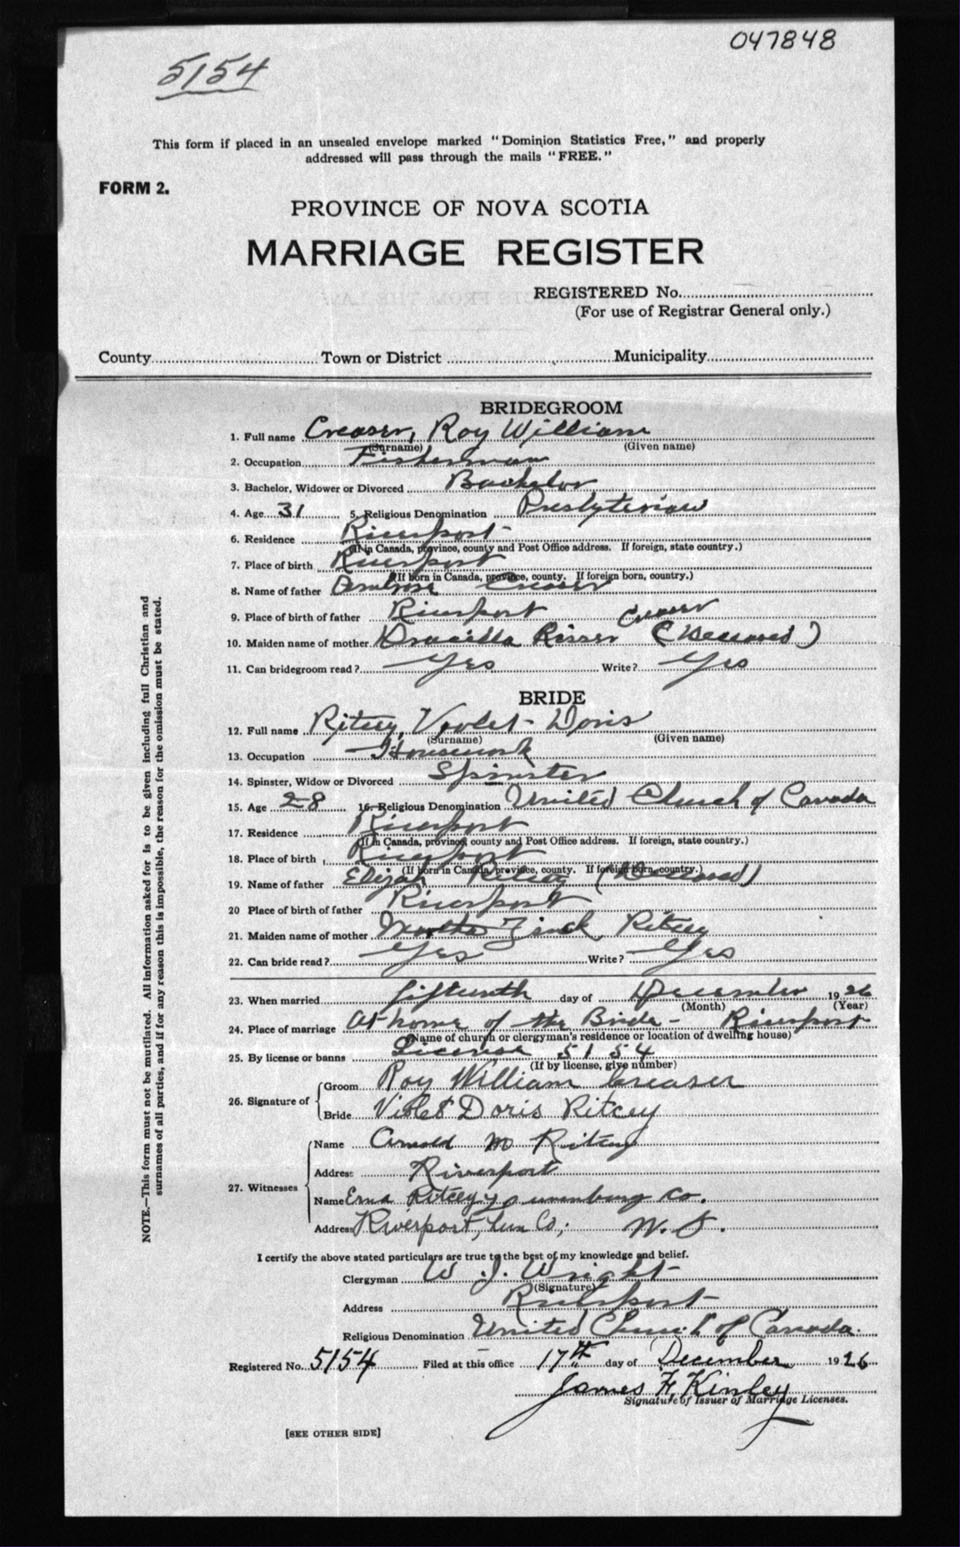 047848
5154
This form if placed in an unsealed envelope marked "Dominion Statistics Free," and properly
addressed will pass through the mails "FREE."
FORM 2.
PROVINCE OF NOVA SCOTIA
MARRIAGE REGISTER
REGISTERED No.
(For use of Registrar General only.)
County Town or District Municipality
BRIDEGROOM
1. Full name Creaser, Roy William
(Surname) (Given name)
2. Occupation Fisherman
3. Bachelor, Widower or Divorced Bachelor
4. Age 31 5. Religious Denomination Presbyterian
6. Residence Riverport
(If in Canada, province, county and Post Office address. If foreign, state country.)
7. Place of birth Riverport
(If born in Canada, province, county. If foreign born, country.)
8. Name of father Ambrose Creaser
9. Place of birth of father Riverport
Creaser
10. Maiden name of mother Drucilla Risser (Deceased)
11. Can bridegroom read? Yes Write? Yes
BRIDE
12. Full name Ritcey, Violet Doris
(Surname) (Given name)
13. Occupation Housework
14. Spinster, Widow or Divorced Spinster
15. Age 28 16. Religious Denomination United Church of Canada
17. Residence Riverport
(If in Canada, province, county and Post Office address. If foreign, state country.)
18. Place of birth Riverport
(If born in Canada, province, county. If foreign born, country.)
19. Name of father Elijah Ritcey (Deceased)
20 Place of birth of father Riverport
21. Maiden name of mother Martha Zinck Ritcey
22. Can bride read? Yes Write? Yes
23. When married fifteenth day of December 1926
(Month) (Year)
24. Place of marriage At home of the Bride - Riverport
(Name of church or clergyman's residence or location of dwelling house)
25. By license or banns License 5154
(If by license, give number)
26. Signature of Groom Roy William Creaser
Bride Violet Doris Ritcey
27. Witnesses Name Arnold M Ritcey
Address Riverport
Name Erna Ritcey Lunenburg Co.
Address Riverport, Lun Co., N. S.
I certify the above stated particulars are true to the best of my knowledge and belief.
Clergyman W J. Wright
(Signature)
Address Riverport
Religious Denomination United Church of Canada.
Registered No. 5154 Filed at this office 17th day of December 1926
James F. Kinley
Signature of Issuer of Marriage Licenses.
[SEE OTHER SIDE]
NOTE.—This form must not be mutilated. All information asked for is to be given including full Christian and
surnames of all parties, and if for any reason this is impossible, the reason for the omission must be stated.